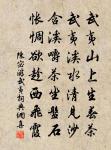 武夷山上生春茶
武夷溪水清見沙
含溪嚼茶坐盤石
悵惆欲趁西飛霞
陈宓游武夷